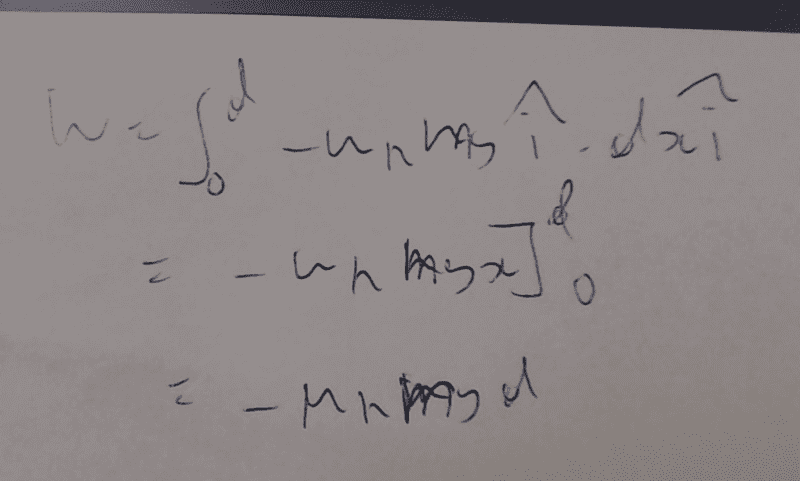 W = ∫₀ᵈ -μₖ mg î · dx î
= -μₖ mg x]₀ᵈ
= -μₖ mg d